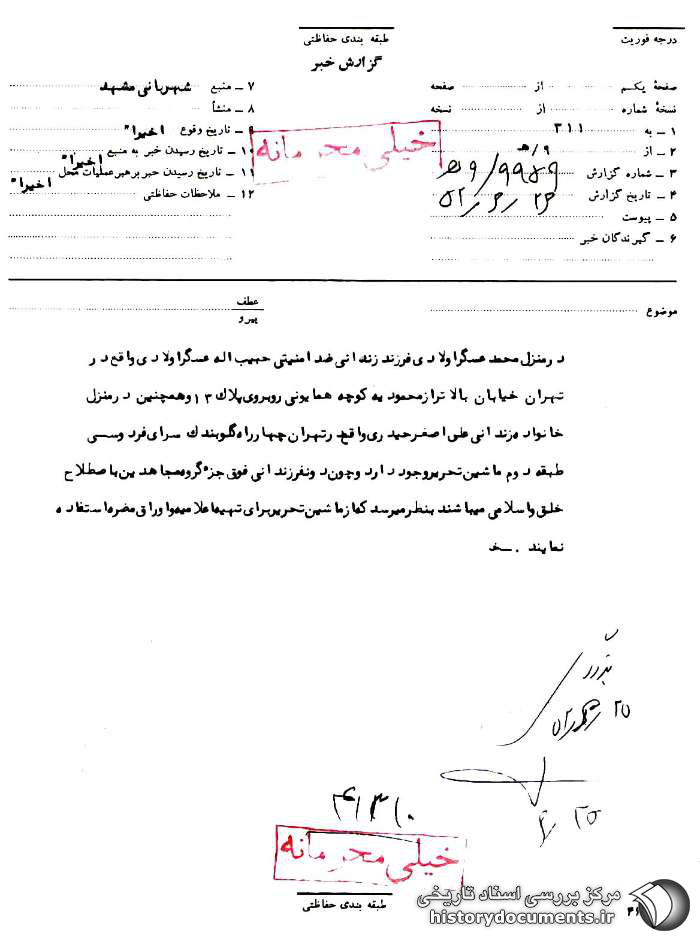 درجه فوریت
طبقه بندی حفاظتی
گزارش خبر
صفحهٔ یکم از صفحه
نسخهٔ شماره از نسخه
۱ – به ۳۱۱
۲ – از ۹/ه
۳ – شماره گزارش ۹۹۵۹/۹ه
۴ – تاریخ گزارش
۵ – پیوست
۶ – گیرندگان خبر
۷ – منبع شهربانی مشهد
۸ – منشأ
۹ – تاریخ وقوع اخیرا"
۱۰ – تاریخ رسیدن خبر به منبع اخیرا"
۱۱ – تاریخ رسیدن خبر برهبر عملیات محل اخیرا"
۱۲ – ملاحظات حفاظتی
خیلی محرمانه
موضوع
عطف
پیرو
در منزل محمد عسگراولادی فرزند زندانی ضد امنیتی حبیب اله عسگراولادی واقع در
تهران خیابان بالاتر از محمودیه کوچه همایونی روبروی پلاک ۱۳ و همچنین در منزل
خانواده زندانی علی اصغر حیدری واقع در تهران چهارراه گلوبندک سرای فردوسی
طبقه دوم ماشین تحریر وجود دارد و چون دو نفر زندانی فوق جزء گروه مجاهدین باصطلاح
خلق و اسلامی میباشند بنظر میرسد که از ماشین تحریر برای تهیه اعلامیه و اوراق مضره استفاده
نمایند .
۲۵
۲۵
خیلی محرمانه
طبقه بندی حفاظتی
مرکز بررسی اسناد تاریخی
historydocuments.ir